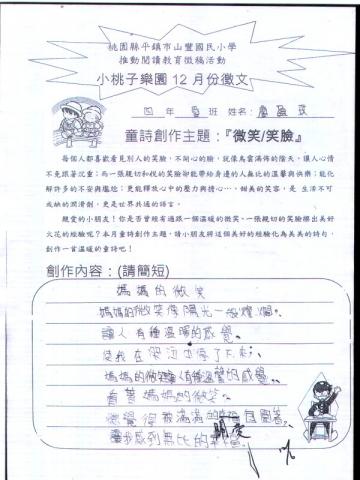 桃園縣平鎮市山豐國民小學
推動閱讀教育徵稿活動
小桃子樂園12月份徵文
四 年 班 姓名:
童詩創作主題:『微笑/笑臉』
每個人都喜歡看見別人的笑臉,不開心的臉,就像烏雲滿佈的陰天,讓人心情
不免跟著沉重;而一張親切和悅的笑臉卻能帶給身邊的人無比的溫馨與快樂;能化
解許多的不安與尷尬;更能釋放心中的壓力與擔心…,甜美的笑容,是 生活不可
或缺的潤滑劑,更是世界共通的語言。
親愛的小朋友!你是否曾經有過跟一個溫暖的微笑、一張親切的笑臉擦出美好
火花的經驗呢?本月童詩創作主題,請小朋友將這個美好的經驗化為美美的詩句,
創作一首溫暖的童詩吧!
創作內容:(請簡短)
媽媽的微笑
媽媽的微笑像陽光一般燦爛,
讓人有種溫暖的感覺。
使我在
媽媽的微笑讓人有種溫馨的感覺,
看著媽媽的微笑,
總覺得被滿滿的 包圍著,
讓我感到無比的
關愛